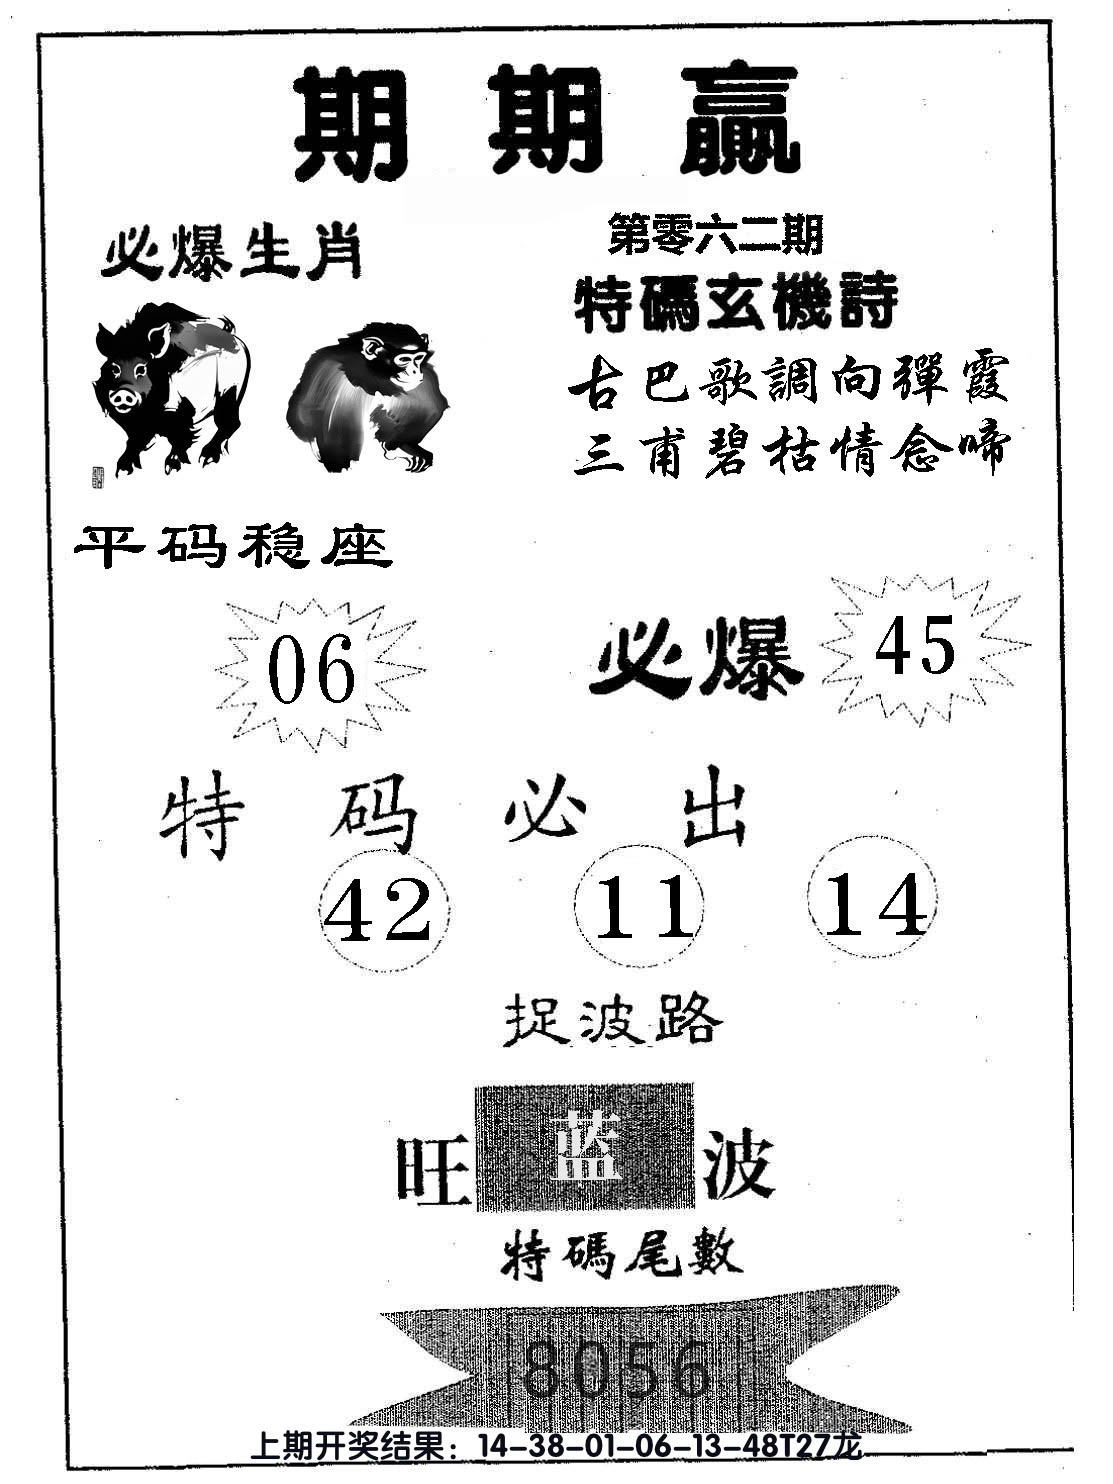 期期赢
必爆生肖
第零六二期
特碼玄機詩
古巴歌調向彈霞
三甫碧枯情念啼
平码稳座
06
必爆
45
特码必出
42 11 14
捉波路
旺蓝波
特碼尾數
8056
上期开奖结果：14-38-01-06-13-48T27龙